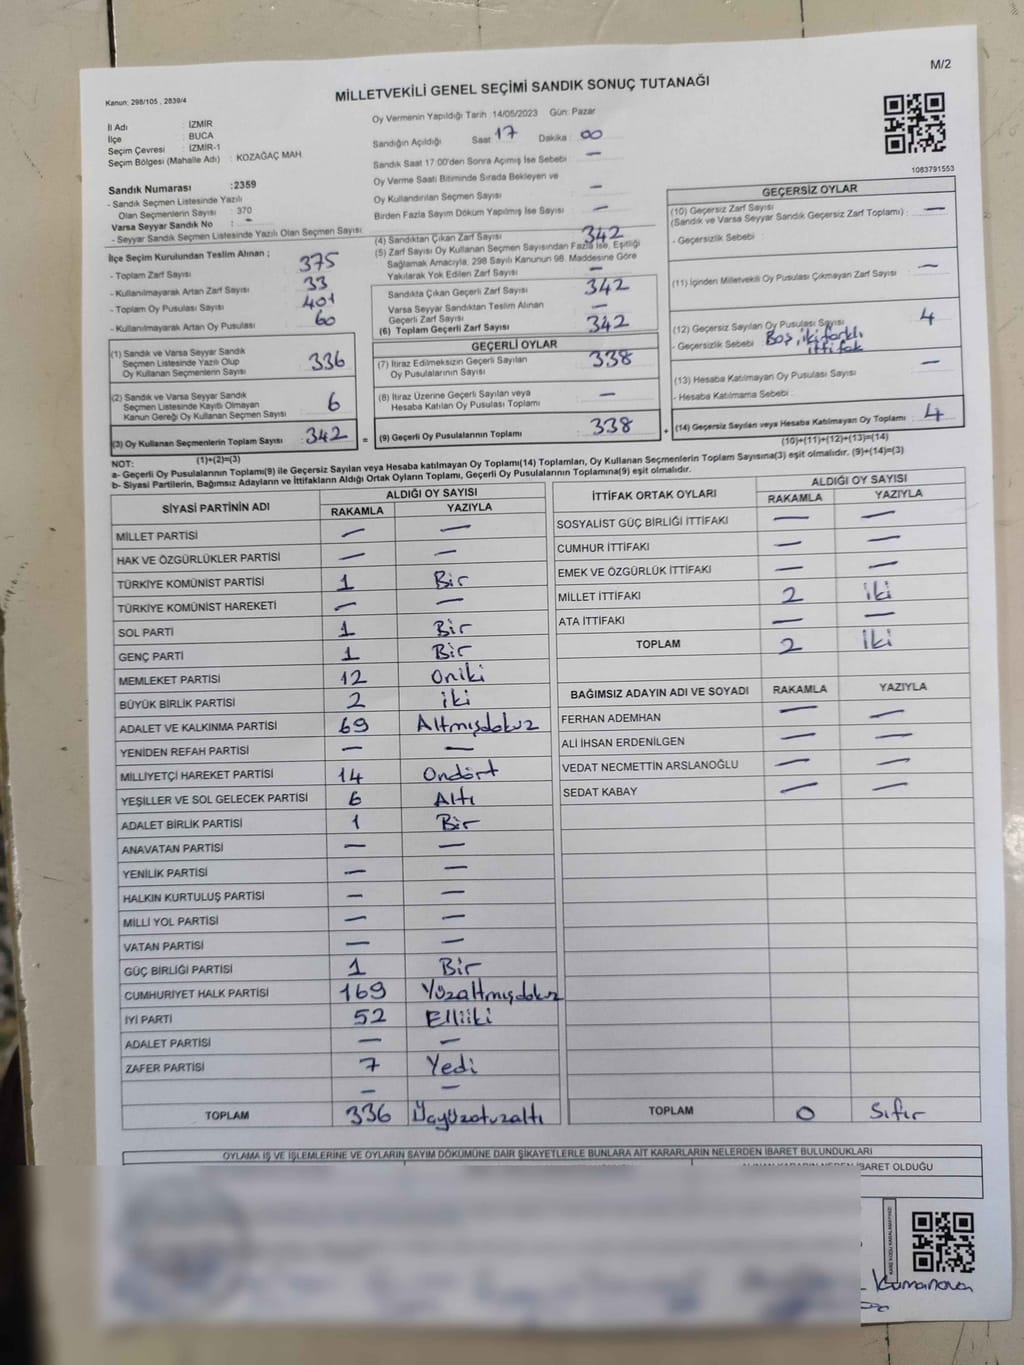 M/2
Kanun: 298/105 , 2839/4
MİLLETVEKİLİ GENEL SEÇİMİ SANDIK SONUÇ TUTANAĞI
İl Adı : İZMİR
İlçe : BUCA
Seçim Çevresi : İZMİR-1
Seçim Bölgesi (Mahalle Adı) : KOZAĞAÇ MAH.
Sandık Numarası :2359
- Sandık Seçmen Listesinde Yazılı
Olan Seçmenlerin Sayısı : 370
Varsa Seyyar Sandık No : -
- Seyyar Sandık Seçmen Listesinde Yazılı Olan Seçmen Sayısı
İlçe Seçim Kurulundan Teslim Alınan ;
- Toplam Zarf Sayısı 375
- Kullanılmayarak Artan Zarf Sayısı 33
- Toplam Oy Pusulası Sayısı 401
- Kullanılmayarak Artan Oy Pusulası 60
(1) Sandık ve Varsa Seyyar Sandık
Seçmen Listesinde Yazılı Olup
Oy Kullanan Seçmenlerin Sayısı : 336
(2) Sandık ve Varsa Seyyar Sandık
Seçmen Listesinde Kayıtlı Olmayan
Kanun Gereği Oy Kullanan Seçmen Sayısı : 6
(3) Oy Kullanan Seçmenlerin Toplam Sayısı : 342
(1)+(2)=(3)
Oy Vermenin Yapıldığı Tarih :14/05/2023 Gün: Pazar
Sandığın Açıldığı Saat 17 Dakika : 00
Sandık Saat 17:00'den Sonra Açımış İse Sebebi —
Oy Verme Saati Bitiminde Sırada Bekleyen ve
Oy Kullandırılan Seçmen Sayısı —
Birden Fazla Sayım Döküm Yapılmış İse Sayısı —
(4) Sandıktan Çıkan Zarf Sayısı 342
(5) Zarf Sayısı Oy Kullanan Seçmen Sayısından Fazla İse, Eşitliği
Sağlamak Amacıyla, 298 Sayılı Kanunun 98. Maddesine Göre
Yakılarak Yok Edilen Zarf Sayısı —
Sandıkta Çıkan Geçerli Zarf Sayısı 342
Varsa Seyyar Sandıktan Teslim Alınan
Geçerli Zarf Sayısı —
(6) Toplam Geçerli Zarf Sayısı 342
GEÇERLİ OYLAR
(7) İtiraz Edilmeksizin Geçerli Sayılan
Oy Pusulalarının Sayısı 338
(8) İtiraz Üzerine Geçerli Sayılan veya
Hesaba Katılan Oy Pusulası Toplamı —
= (9) Geçerli Oy Pusulalarının Toplamı 338
1083791553
GEÇERSİZ OYLAR
(10) Geçersiz Zarf Sayısı
(Sandık ve Varsa Seyyar Sandık Geçersiz Zarf Toplamı) : —
- Geçersizlik Sebebi :
(11) İçinden Milletvekili Oy Pusulası Çıkmayan Zarf Sayısı —
(12) Geçersiz Sayılan Oy Pusulası Sayısı 4
- Geçersizlik Sebebi Boş, iki farklı
ittifak
(13) Hesaba Katılmayan Oy Pusulası Sayısı —
- Hesaba Katılmama Sebebi :
+ (14) Geçersiz Sayılan veya Hesaba Katılmayan Oy Toplamı : 4
(10)+(11)+(12)+(13)=(14)
NOT:
a- Geçerli Oy Pusulalarının Toplamı(9) ile Geçersiz Sayılan veya Hesaba katılmayan Oy Toplamı(14) Toplamları, Oy Kullanan Seçmenlerin Toplam Sayısına(3) eşit olmalıdır. (9)+(14)=(3)
b- Siyasi Partilerin, Bağımsız Adayların ve İttifakların Aldığı Ortak Oyların Toplamı, Geçerli Oy Pusulalarının Toplamına(9) eşit olmalıdır.
SİYASİ PARTİNİN ADI ALDIĞI OY SAYISI
RAKAMLA YAZIYLA
MİLLET PARTİSİ — —
HAK VE ÖZGÜRLÜKLER PARTİSİ — —
TÜRKİYE KOMÜNİST PARTİSİ 1 Bir
TÜRKİYE KOMÜNİST HAREKETİ — —
SOL PARTİ 1 Bir
GENÇ PARTİ 1 Bir
MEMLEKET PARTİSİ 12 Oniki
BÜYÜK BİRLİK PARTİSİ 2 iki
ADALET VE KALKINMA PARTİSİ 69 Altmışdokuz
YENİDEN REFAH PARTİSİ — —
MİLLİYETÇİ HAREKET PARTİSİ 14 Ondört
YEŞİLLER VE SOL GELECEK PARTİSİ 6 Altı
ADALET BİRLİK PARTİSİ 1 Bir
ANAVATAN PARTİSİ — —
YENİLİK PARTİSİ — —
HALKIN KURTULUŞ PARTİSİ — —
MİLLİ YOL PARTİSİ — —
VATAN PARTİSİ — —
GÜÇ BİRLİĞİ PARTİSİ 1 Bir
CUMHURİYET HALK PARTİSİ 169 Yüzaltmışdokuz
İYİ PARTİ 52 Elliiki
ADALET PARTİSİ — —
ZAFER PARTİSİ 7 Yedi
— —
TOPLAM 336 Üçyüzotuzaltı
İTTİFAK ORTAK OYLARI ALDIĞI OY SAYISI
RAKAMLA YAZIYLA
SOSYALİST GÜÇ BİRLİĞİ İTTİFAKI — —
CUMHUR İTTİFAKI — —
EMEK VE ÖZGÜRLÜK İTTİFAKI — —
MİLLET İTTİFAKI 2 iki
ATA İTTİFAKI — —
TOPLAM 2 iki
BAĞIMSIZ ADAYIN ADI VE SOYADI RAKAMLA YAZIYLA
FERHAN ADEMHAN — —
ALİ İHSAN ERDENİLGEN — —
VEDAT NECMETTİN ARSLANOĞLU — —
SEDAT KABAY — —
TOPLAM 0 Sıfır
OYLAMA İŞ VE İŞLEMLERİNE VE OYLARIN SAYIM DÖKÜMÜNE DAİR ŞİKAYETLERLE BUNLARA AİT KARARLARIN NELERDEN İBARET BULUNDUKLARI
İBARET OLDUĞU
Kumanova